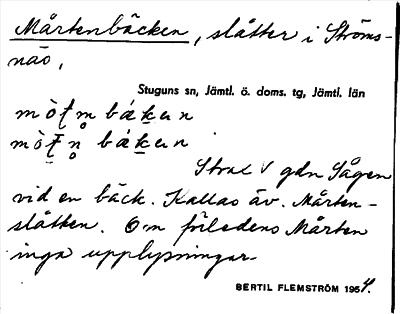 Mårtenbäcken, slåtter i Ströms-
näs,
Stuguns sn, Jämtl. ö. doms. tg, Jämtl. län
Strax V gdn Sågen
vid en bäck. Kallas äv. Mårten-
slåtten. O:m förledens Mårten
inga upplysningar
BERTIL FLEMSTRÖM 1954.